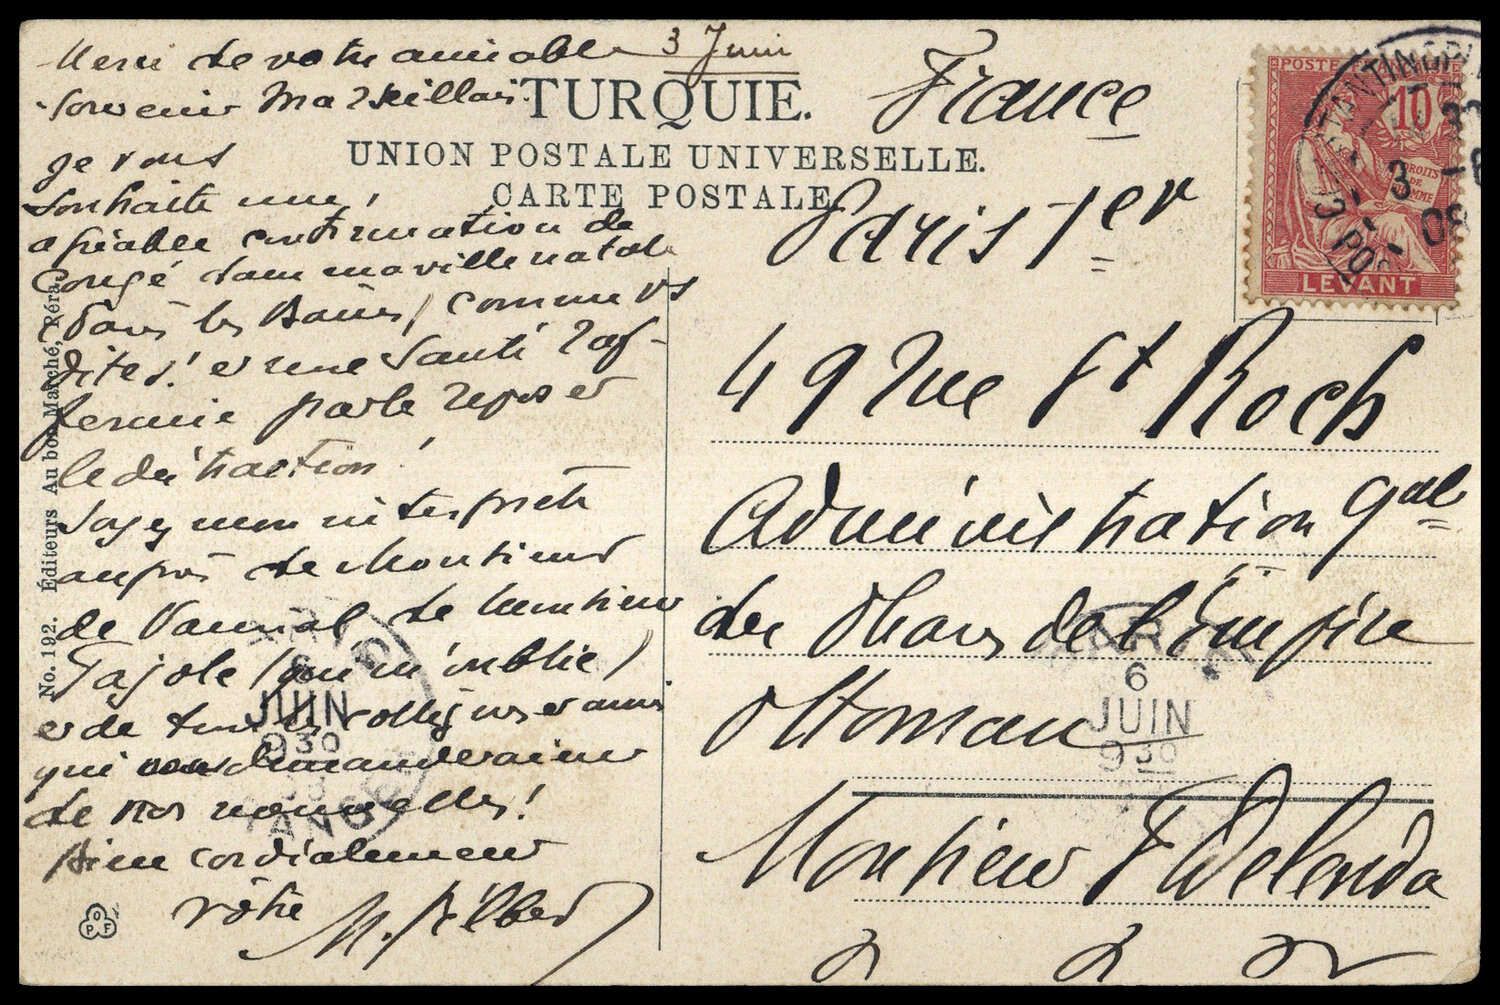 3 Juin
Merci de votre aimable
souvenir Marseillais.
Je vous
souhaite une
agréable continuation de
Congé dans ma ville natale
(dans les Bains, comme vs
dites! et une santé raf-
fermie par le repos et
la distraction!
Soyez mon interprète
auprès de Monsieur
de Vauréal de Monsieur
Pajole (qui m'oublie)
et de tous les collègues et amis
qui vous demanderaient
de nos nouvelles!
Bien cordialement
vôtre
TURQUIE.
UNION POSTALE UNIVERSELLE.
CARTE POSTALE.
No. 192. Éditeurs Au bon Marché, Péra.
OPF
France
Paris 1er
49 rue St Roch
Administration Gale
des Phares de l'Empire
Ottoman
Monsieur F Delenda
POSTE FRANÇAISE
10
DROITS
DE
HOMME
LEVANT
CONSTANTINOPLE
3 -6
08
6
JUIN
930
PARIS
6
JUIN
930